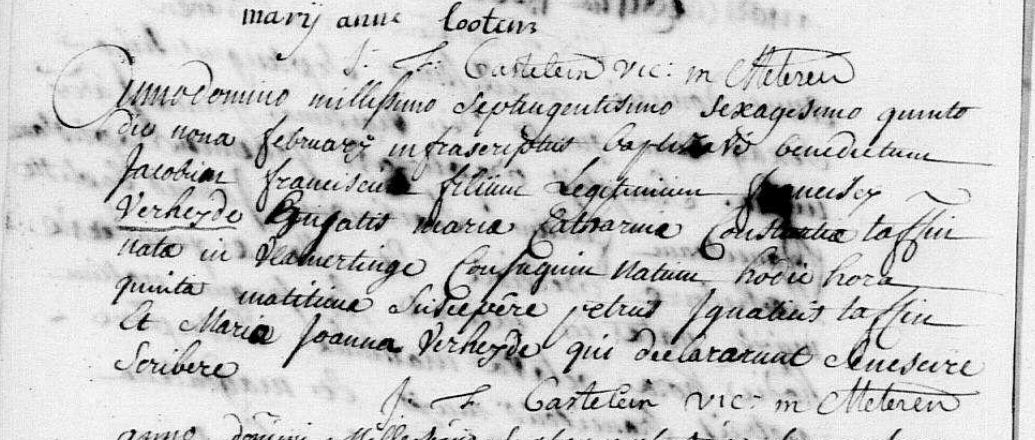 marij anne lootens
J: F: Castelein vic: in Meteren
Anno domino millesimo septengentisimo sexagesimo quinto
die nona februarij infrascriptus baptizavi benedictum
Jacobum franciscum filium Legitimum francisci
Verheyde Brigatis maria Catharine Constantia taffin
nata in Vlamertinge Conjugum natum hodie hora
quinta matitiue suscepere petrus Ignatius taffin
Et Maria Joanna Verheyde qui declararunt se nescire
scribere
J: F: Castelein vic: in Meteren
anno domini